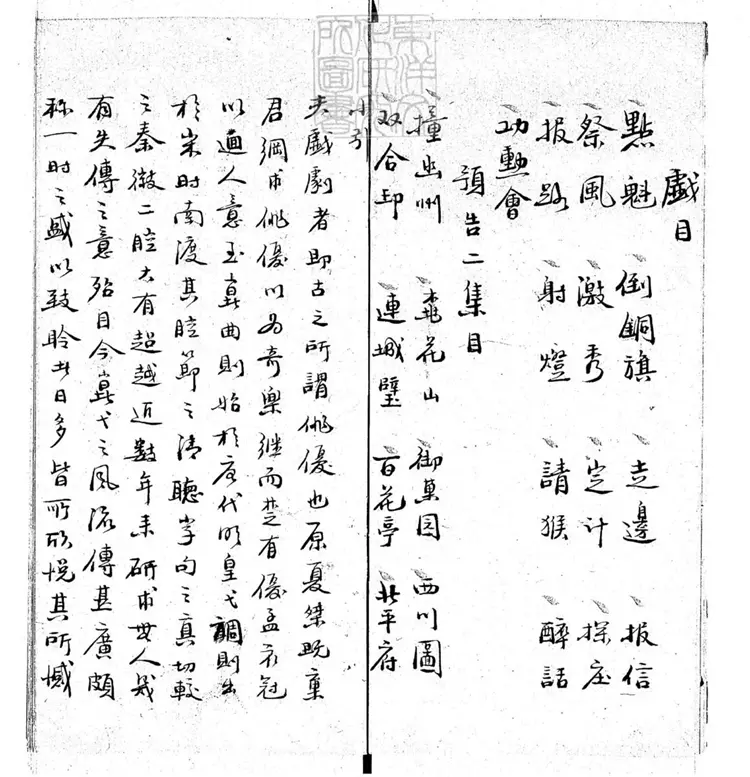 戲目
點魁 倒銅旗 走邊 报信
祭風 激秀 定计 探庄
报路 射燈 請猴 醉話
功勳會
預告二集目
撞幽州 桃花山 御菓园 西川圖
双合印 連城璧 百花亭 北平府
小引
夫戲劇者即古之所謂俳優也原夏桀既棄
君綱求俳優以为奇樂継而楚有優孟衣冠
以適人意至崑曲則始於唐代明皇弋調則出
於宋时南渡其腔節之清聽字句之真切較
之秦徽二腔大有超越近數年来研求無人幾
有失傳之意殆目今崑弋之风流傳甚廣頗
称一时之盛以致聆者日多皆所欣悦其所憾